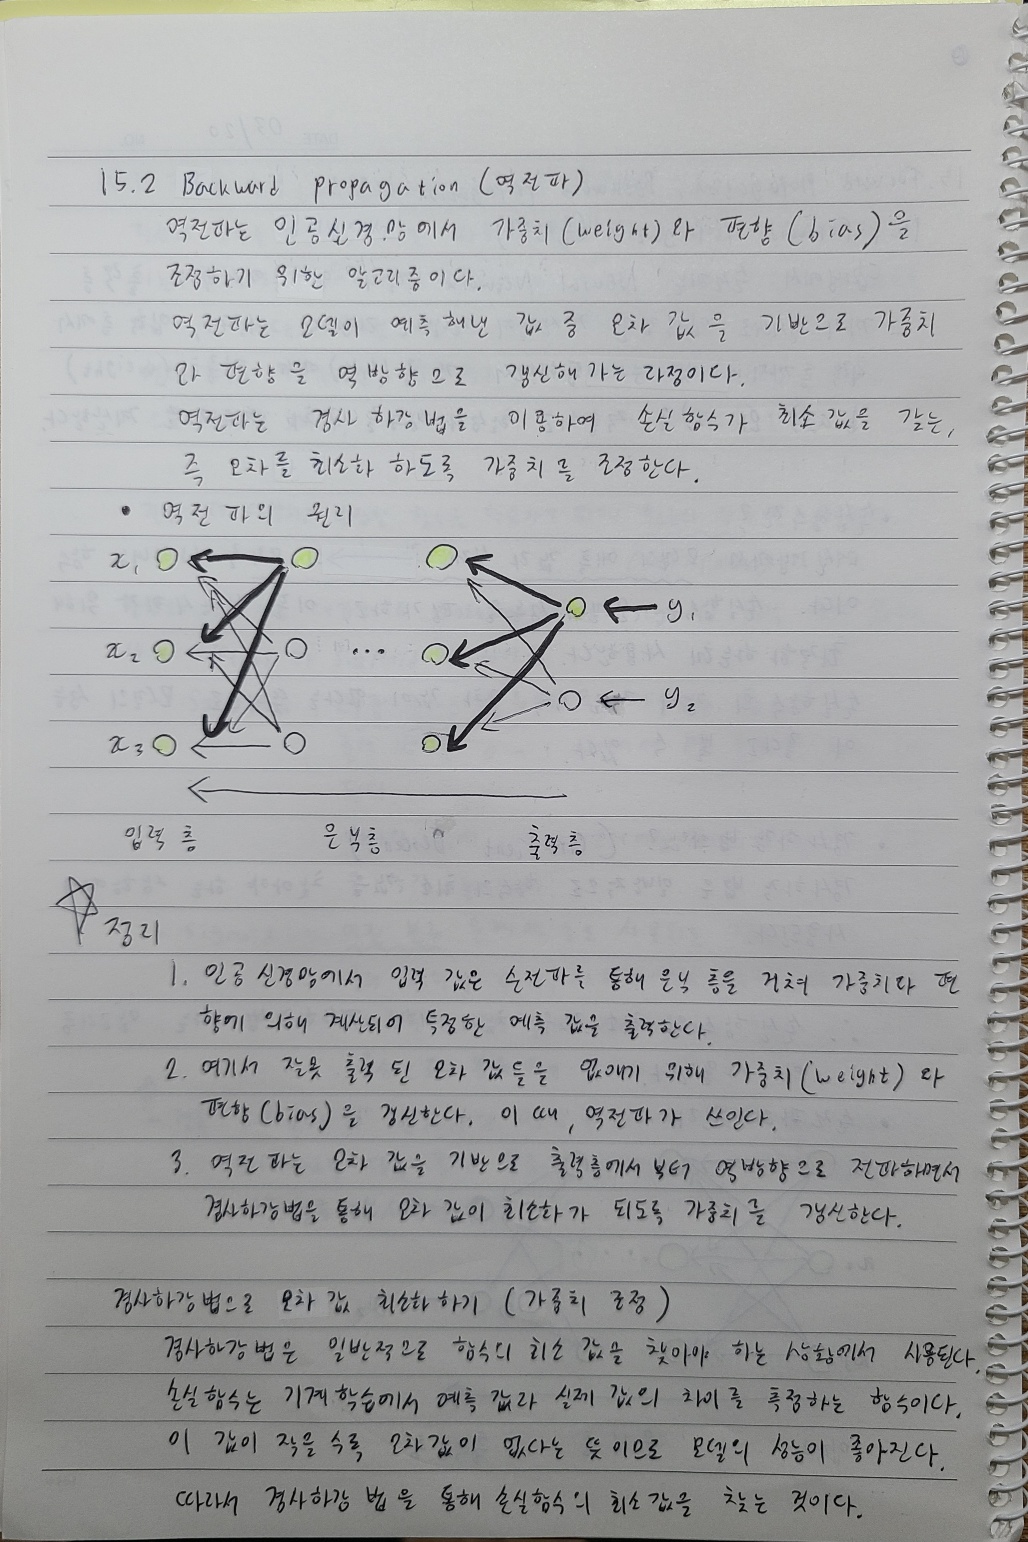 15.2 Backward propagation (역전파)
역전파는 인공신경망에서 가중치(weight)와 편향(bias)을
조정하기 위한 알고리즘이다.
역전파는 모델이 예측해낸 값 중 오차 값을 기반으로 가중치
와 편향을 역방향으로 갱신해가는 과정이다.
역전파는 경사 하강법을 이용하여 손실함수가 최소 값을 갖는,
즉 오차를 최소화 하도록 가중치를 조정한다.
• 역전파의 원리
x₁
y₁
x₂ ...
y₂
x₃
입력층 은닉층 출력층
정리
1. 인공신경망에서 입력 값은 순전파를 통해 은닉 층을 거쳐 가중치와 편
향에 의해 계산되어 특정한 예측 값을 출력한다.
2. 여기서 잘못 출력 된 오차 값들을 없애기 위해 가중치(weight)와
편향(bias)을 갱신한다. 이 때, 역전파가 쓰인다.
3. 역전파는 오차 값을 기반으로 출력층에서부터 역방향으로 전파하면서
경사하강법을 통해 오차 값이 최소화가 되도록 가중치를 갱신한다.
경사하강법으로 오차 값 최소화하기 (가중치 조정)
경사하강법은 일반적으로 함수의 최소 값을 찾아야 하는 상황에서 사용된다.
손실함수는 기계학습에서 예측 값과 실제 값의 차이를 측정하는 함수이다.
이 값이 작을 수록 오차값이 없다는 뜻이므로 모델의 성능이 좋아진다.
따라서 경사하강법을 통해 손실함수의 최소값을 찾는 것이다.